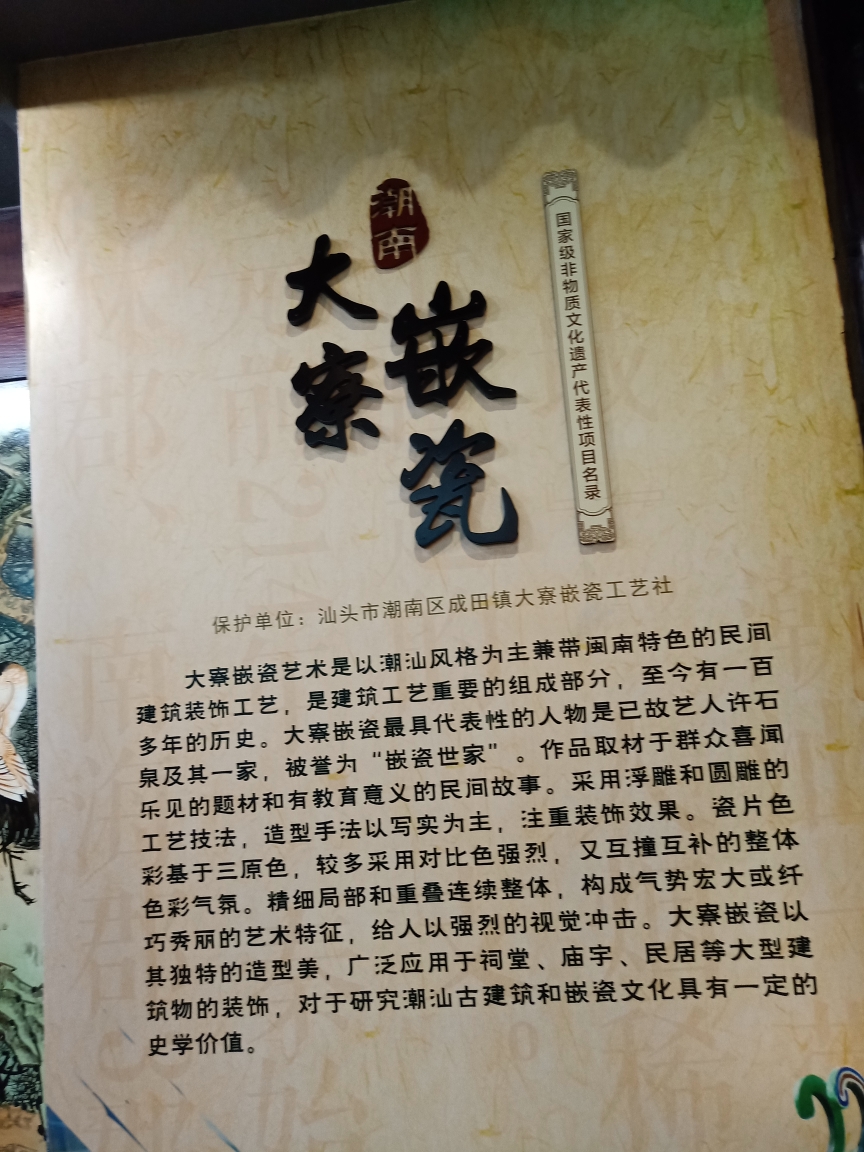 潮南
大寮
嵌瓷
国家级非物质文化遗产代表性项目名录
保护单位：汕头市潮南区成田镇大寮嵌瓷工艺社
大寮嵌瓷艺术是以潮汕风格为主兼带闽南特色的民间
建筑装饰工艺，是建筑工艺重要的组成部分，至今有一百
多年的历史。大寮嵌瓷最具代表性的人物是已故艺人许石
泉及其一家，被誉为“嵌瓷世家”。作品取材于群众喜闻
乐见的题材和有教育意义的民间故事。采用浮雕和圆雕的
工艺技法，造型手法以写实为主，注重装饰效果。瓷片色
彩基于三原色，较多采用对比色强烈，又互撞互补的整体
色彩气氛。精细局部和重叠连续整体，构成气势宏大或纤
巧秀丽的艺术特征，给人以强烈的视觉冲击。大寮嵌瓷以
其独特的造型美，广泛应用于祠堂、庙宇、民居等大型建
筑物的装饰，对于研究潮汕古建筑和嵌瓷文化具有一定的
史学价值。